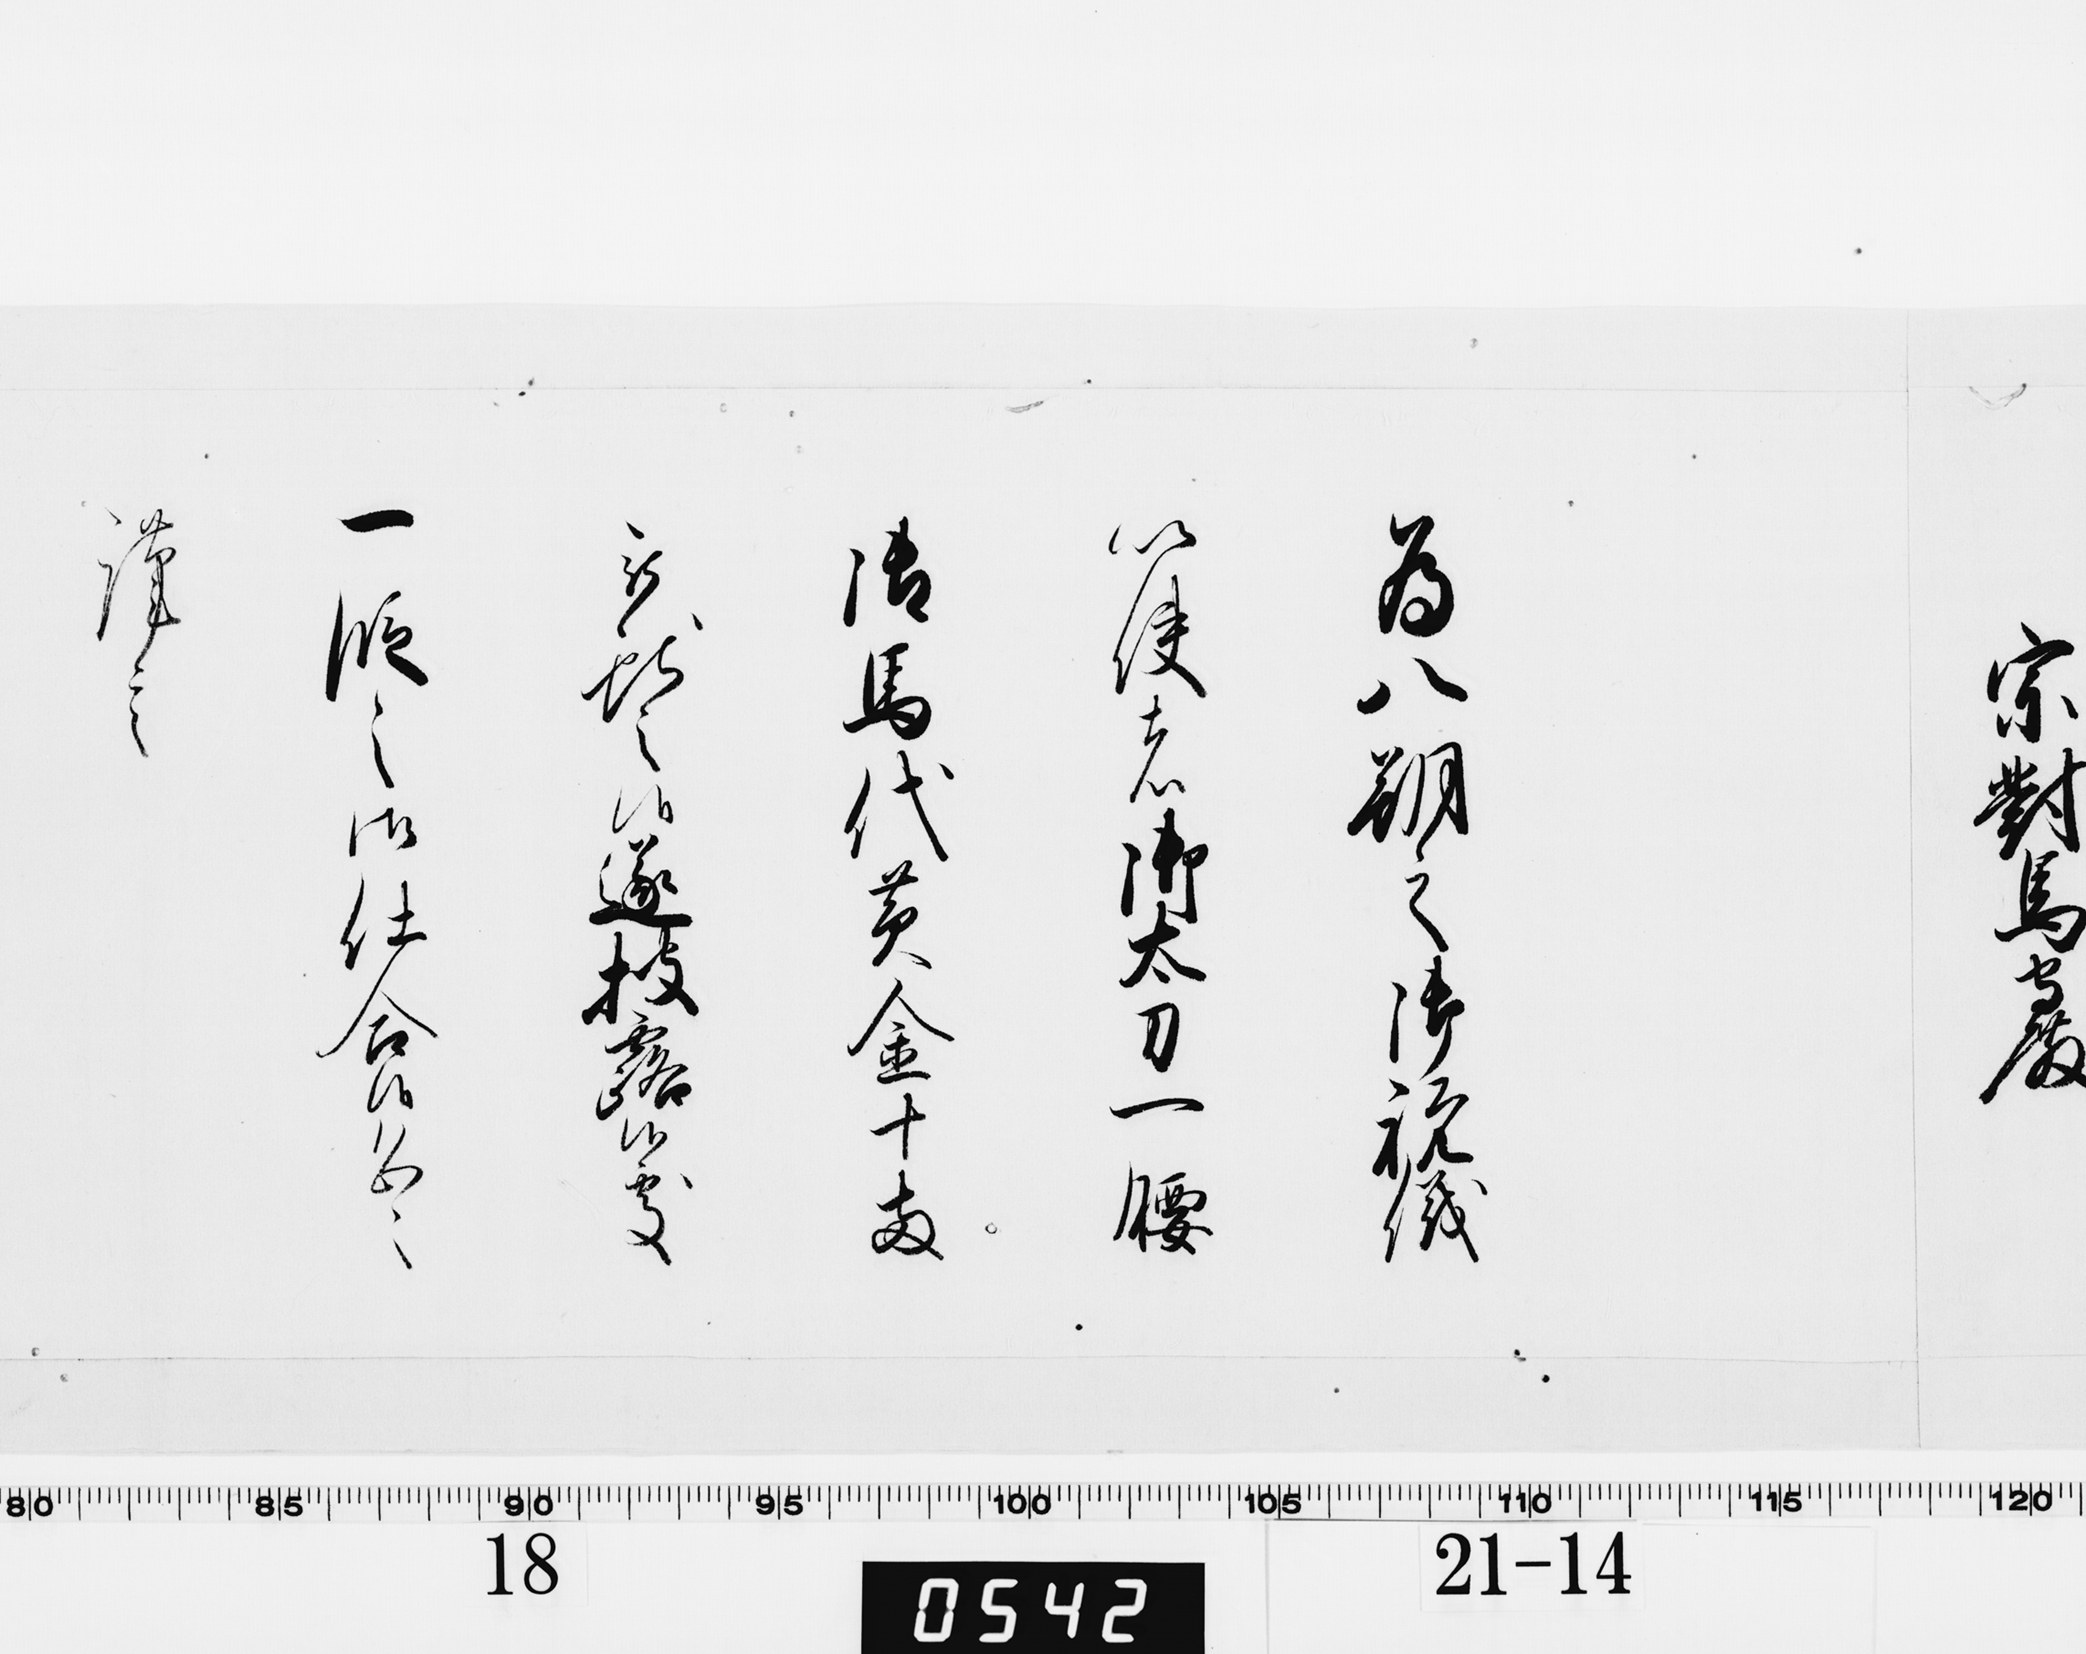 宗對馬守殿
為八朔之御祝儀
以使者御太刀一腰
御馬代黄金十両
献之候遂披露候處
一段之御仕合候恐々
謹言
80 85 90 95 100 105 110 115 120
18
0542
21-14